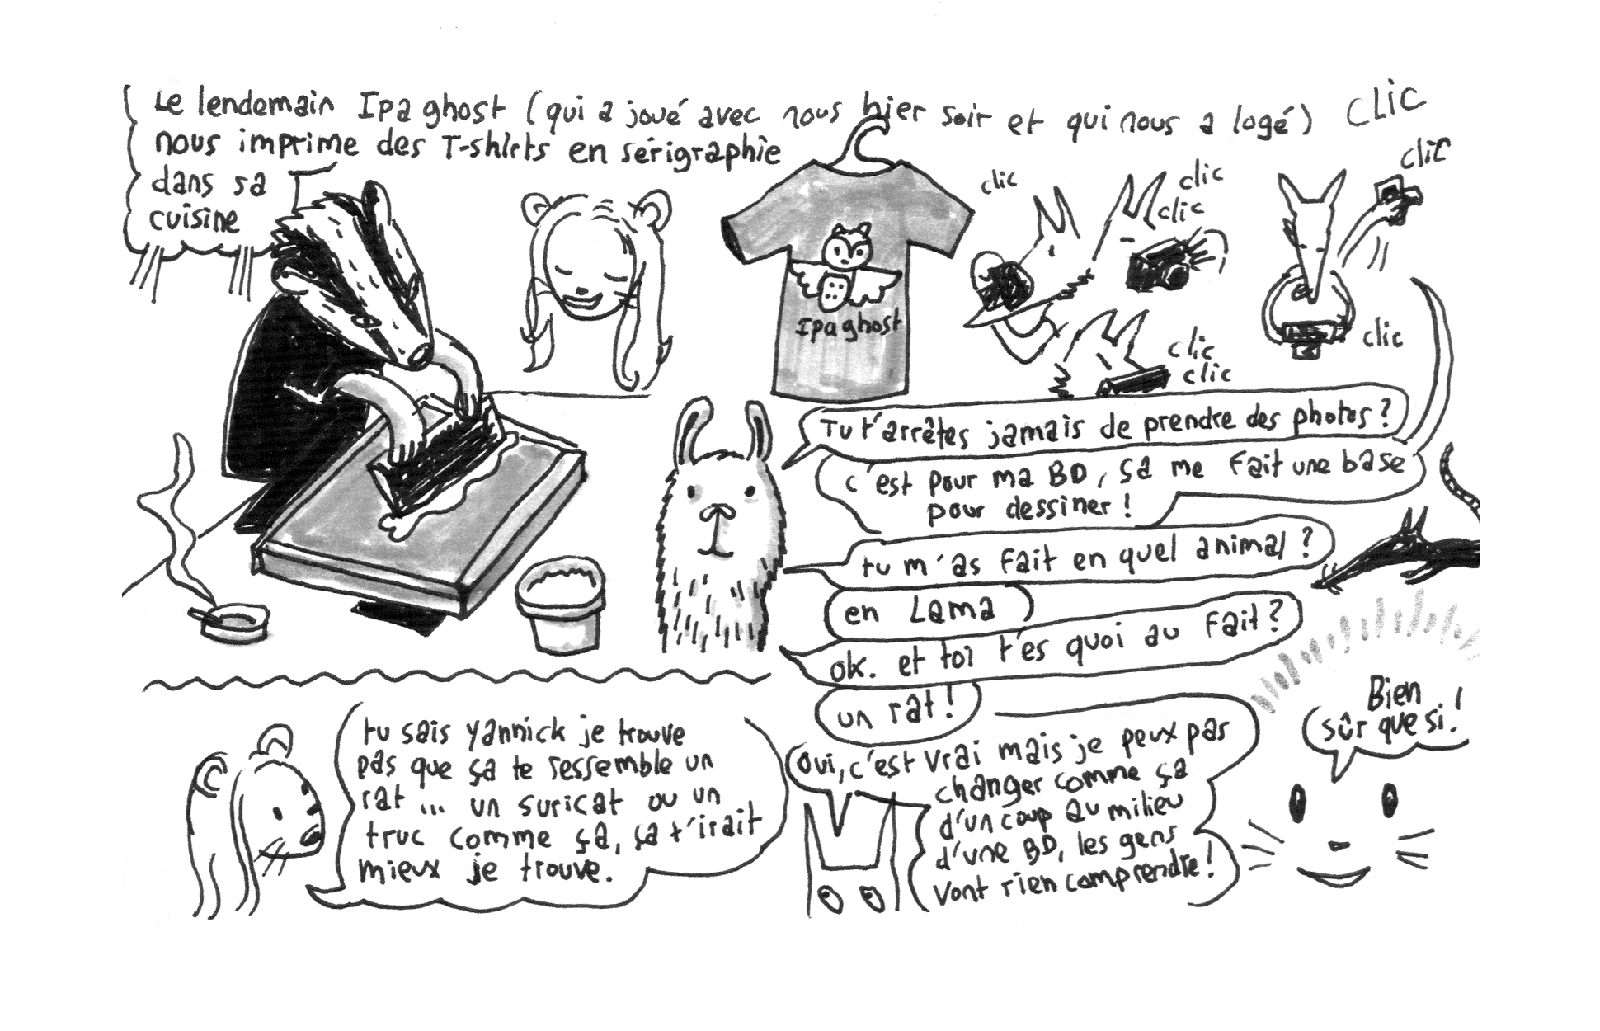 Le lendemain Ipa ghost (qui a joué avec nous hier soir et qui nous a logé)
nous imprime des T-shirts en sérigraphie
dans sa
cuisine
clic
clic
clic
clic
clic
clic
clic
clic
Ipa ghost
Tu t'arrêtes jamais de prendre des photos ?
c'est pour ma BD, ça me fait une base
pour dessiner !
tu m'as fait en quel animal ?
en Lama
ok. et toi t'es quoi au fait ?
un rat !
tu sais yannick je trouve
pas que ça te ressemble un
rat ... un suricat ou un
truc comme ça, ça t'irait
mieux je trouve.
oui, c'est vrai mais je peux pas
changer comme ça
d'un coup au milieu
d'une BD, les gens
vont rien comprendre !
Bien
sûr que si !